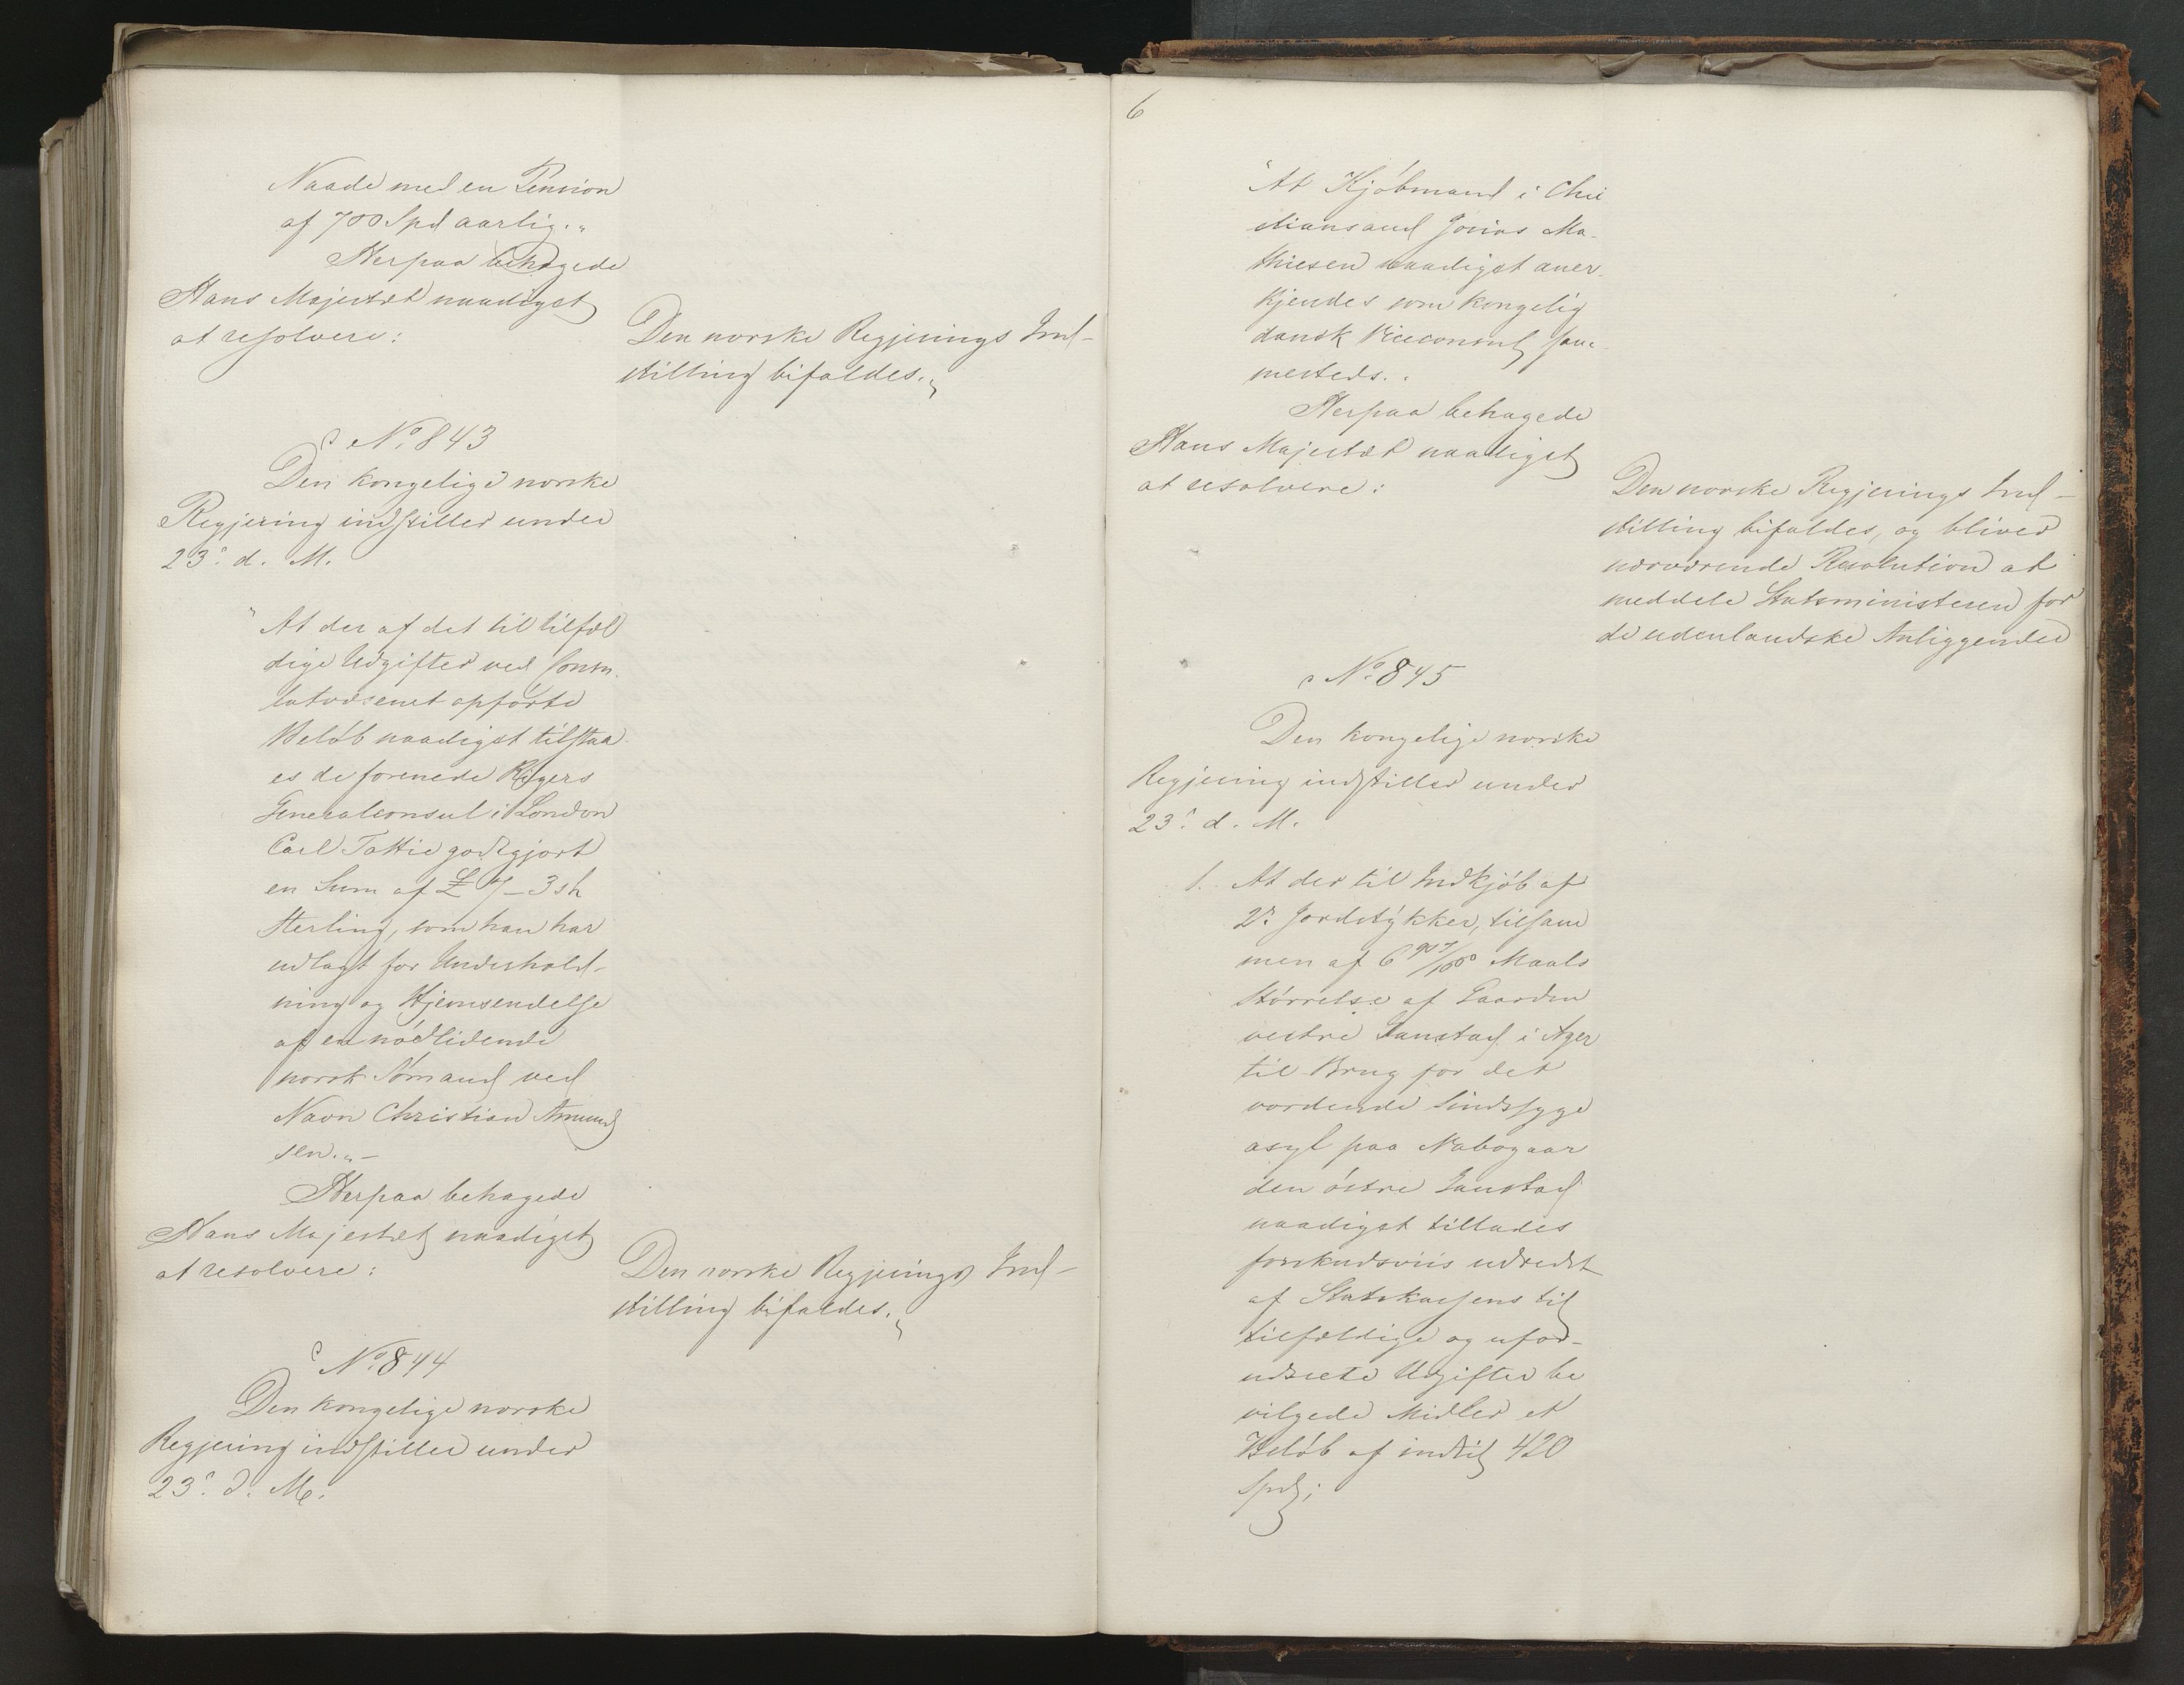 Naade med en Pension
af 700 Spd aarlig."
Herpaa behagede
Hans Majestæt naadigst
at resolvere:
Den norske Regjerings Ind-
stilling bifaldes."
No. 843
Den kongelige norske
Regjering indstiller under
23. d. M.
"At der af det til tilfæl
dige Udgifter ved Consu-
latvæsenet opførte
Beløb naadigst tilstaa-
es de forenede Rigers
Generalconsul i London
Carl Tottie godtgjort
en Sum af £ - 3 sh
Sterling, som han har
udlagt for Underhold-
ning og Hjemsendelse
af en nødlidende
norsk Sømand ved
Navn Christian Amund
sen." -
Herpaa behagede
Hans Majestæt naadigst
at resolvere:
Den norske Regjerings Ind-
stilling bifaldes."
No. 844
Den kongelige norske
Regjering indstiller under
23. d. M.
6
"At Kjøbmand i Chri
stiansand Jonas Ma-
thiesen naadigst aner-
kjendes som kongelig
dansk Viceconsul sam-
mesteds."
Herpaa behagede
Hans Majestæt naadigst
at resolvere:
Den norske Regjerings Ind-
stilling bifaldes, og bliver
nærværende Resolution at
meddele Statsministeren for
de udenlandske Anliggender
No. 845
Den kongelige norske
Regjering indstiller under
23. d. M.
1. At der til Indkjøb af
2 Jordstykker, tilsam
men af 6 907/1000 Maals
Størrelse af Gaarden
vestre Gaustad i Ager
til Brug for det
vordende Sindssyge
asyl paa Nabogaar
den østre Gaustad
naadigst tillades
forskudsviis udredet
af Statskassens til
tilfældige og ufor-
udseete Udgifter be
vilgede Midler et
Beløb af indtil 420
Spd;